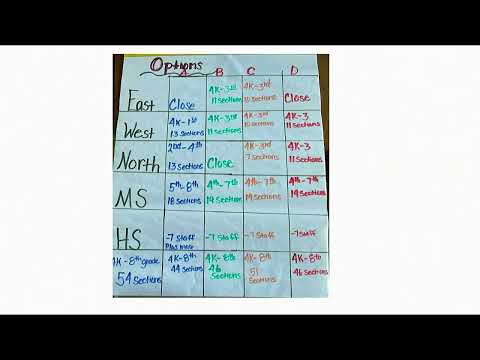 Options
A B C D
East
Close
4K-3rd
11 sections
4K-3rd
10 sections
Close
West
4K-1st
13 sections
4K-3rd
11 sections
4K-3rd
10 sections
4K-3
11 sections
North
2nd-4th
13 sections
Close
4K-3rd
7 sections
4K-3
11 sections
MS
5th-8th
18 sections
4th-7th
19 sections
4th-7th
19 sections
4th-7th
19 sections
HS
-7 staff
-7 staff
-7 staff
-7 staff
4K-8th grade
54 sections
4K-8th
44 sections
4K-8th
46
sections
4K-8th
51
sections
4K-8th
46 sections